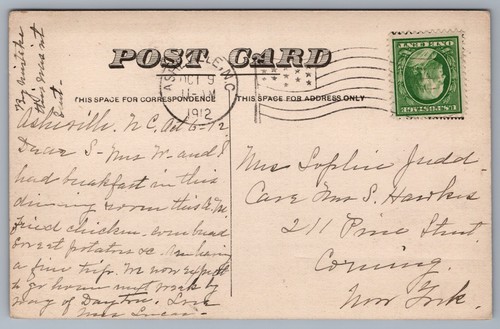 By mistake
this wasn't
sent -
POST CARD
ASHEVILLE, N.C.
OCT 9
11-AM
1912
THIS SPACE FOR CORRESPONDENCE
THIS SPACE FOR ADDRESS ONLY
U.S. POSTAGE
ONE CENT
Asheville, N.C. Oct 6-12
Dear S- Mrs W. and I
had breakfast in this
dining room this A.M.
fried chicken - corn bread
sweet potatoes &c. Am having
a fine trip. We now expect
to go home next week by
way of Dayton. Love
Miss Lucas -
Mrs Sophie Judd -
Care Mrs S. Hawkes
211 Pine Street
Corning.
New York.